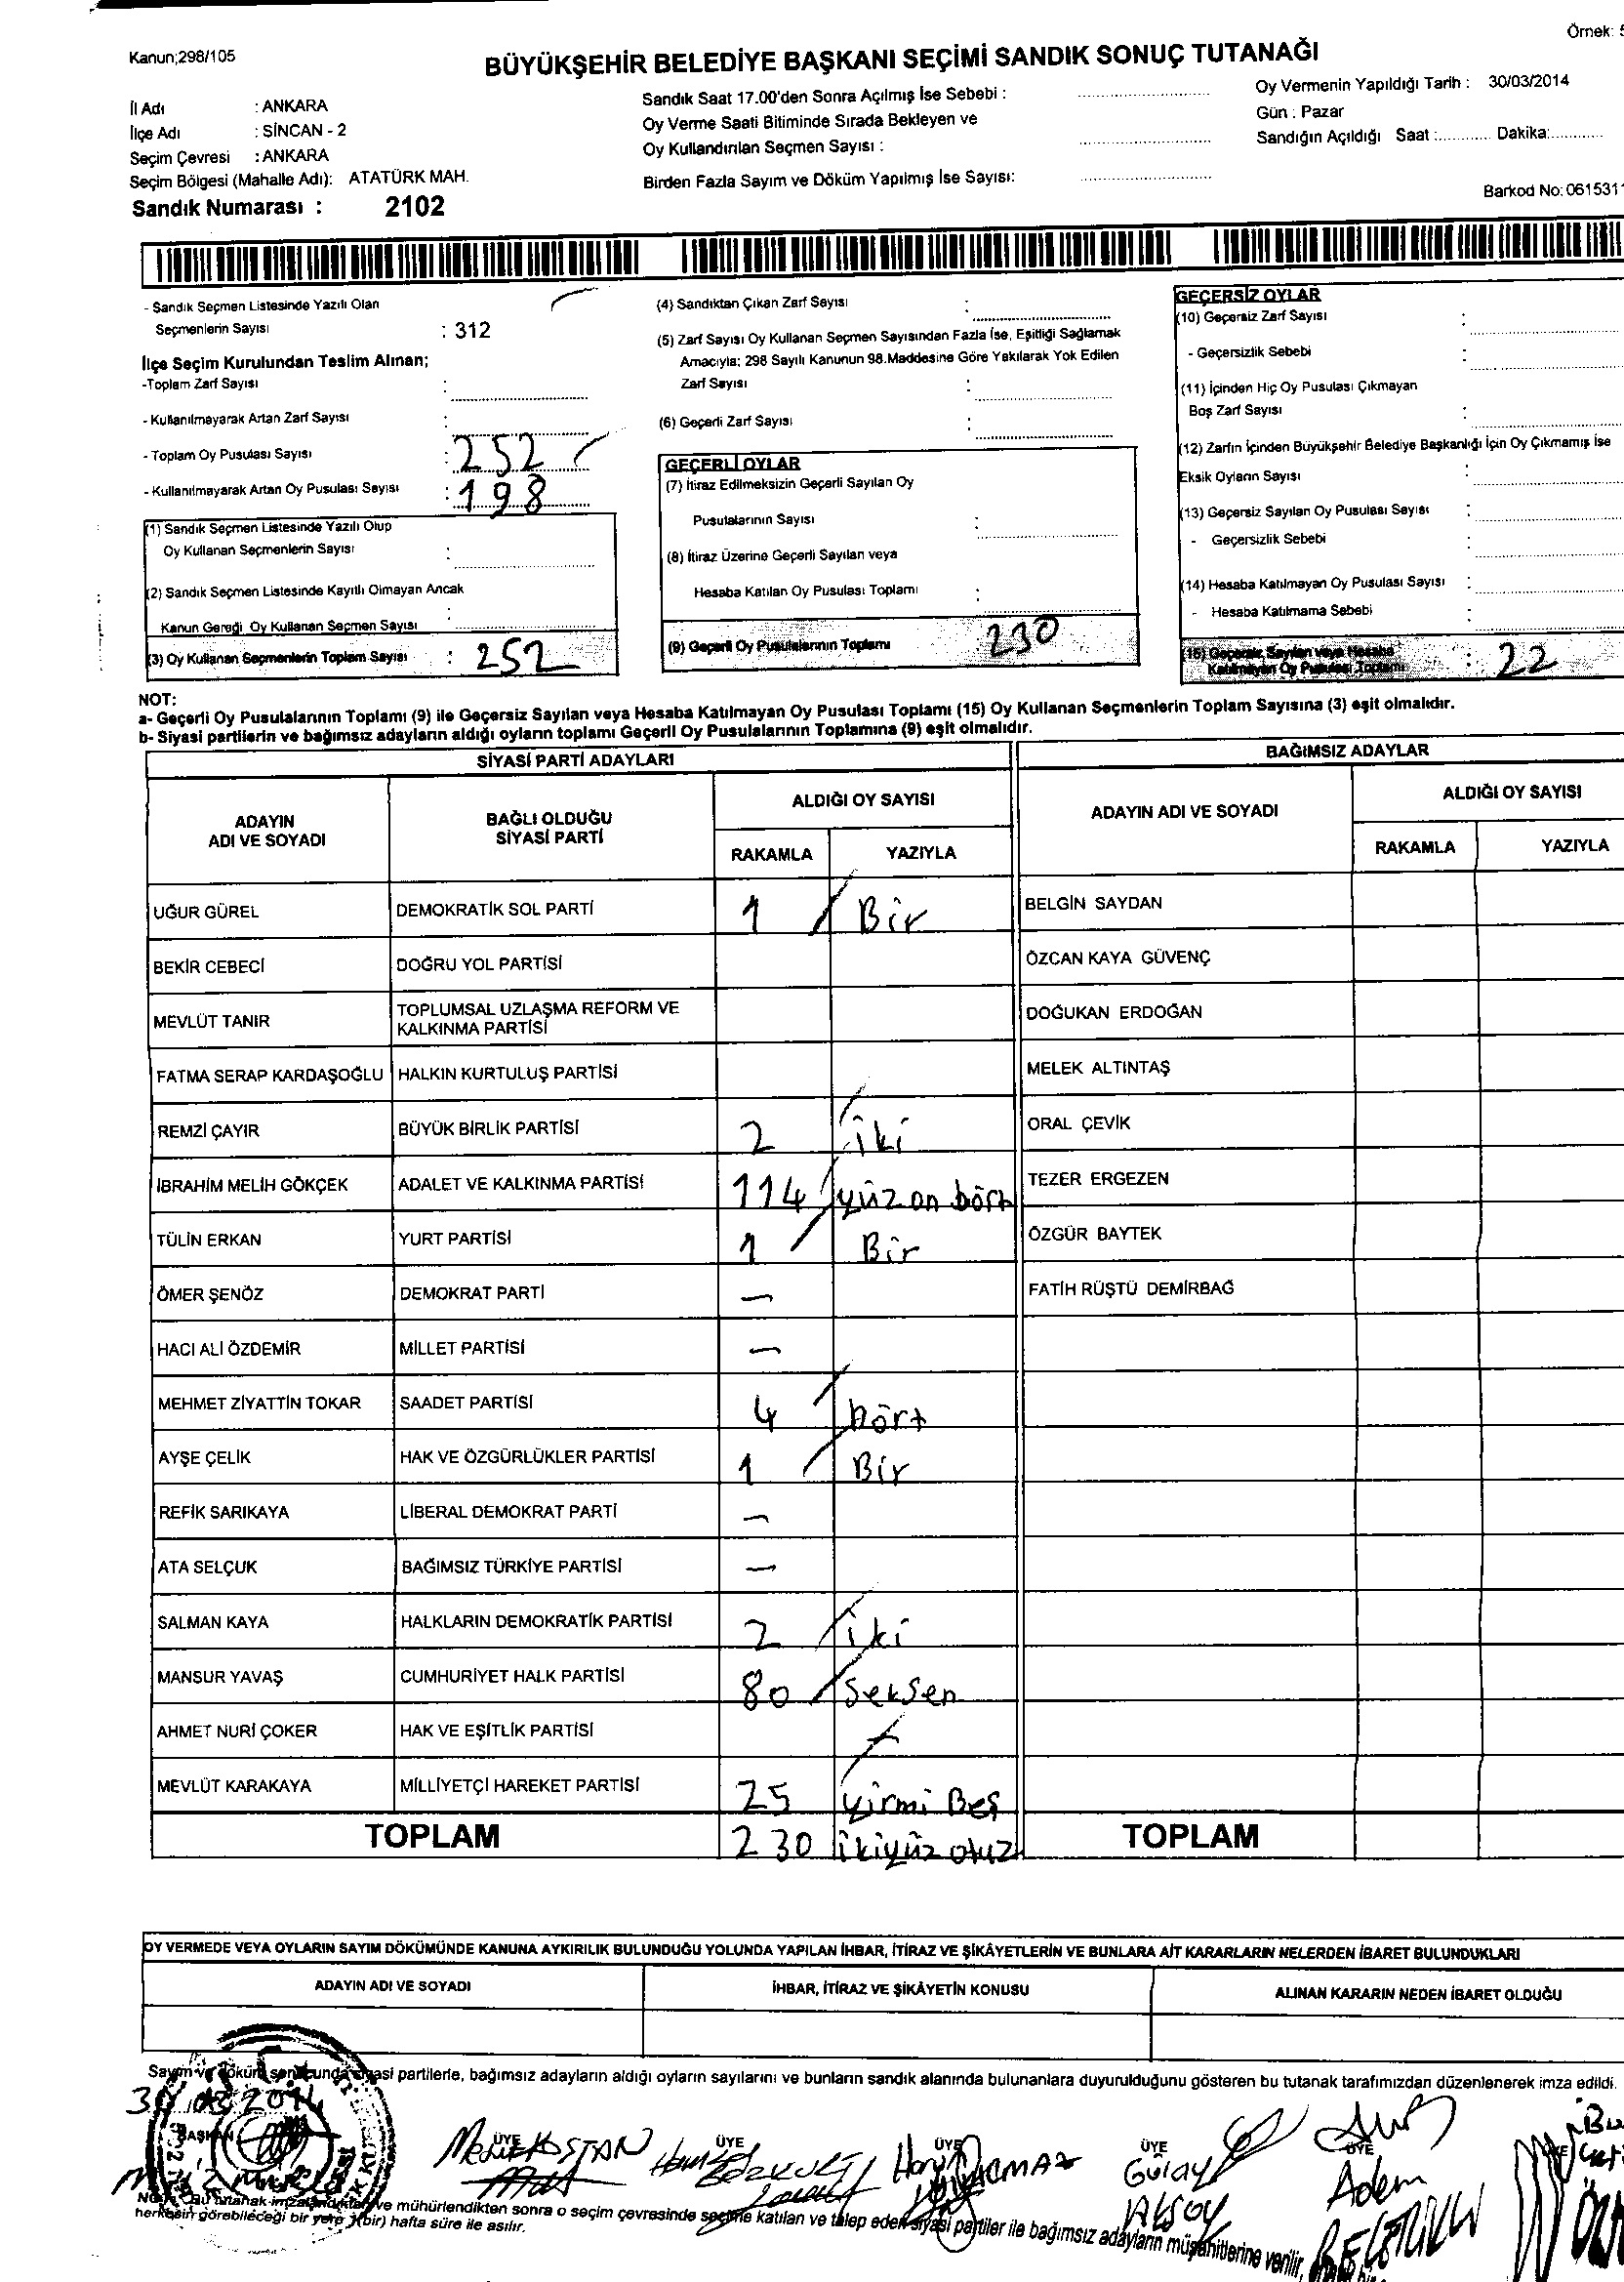 Örnek: 5
Kanun;298/105
BÜYÜKŞEHİR BELEDİYE BAŞKANI SEÇİMİ SANDIK SONUÇ TUTANAĞI
İl Adı : ANKARA
İlçe Adı : SİNCAN - 2
Seçim Çevresi : ANKARA
Seçim Bölgesi (Mahalle Adı): ATATÜRK MAH.
Sandık Numarası : 2102
Sandık Saat 17.00'den Sonra Açılmış İse Sebebi :
Oy Verme Saati Bitiminde Sırada Bekleyen ve
Oy Kullandırılan Seçmen Sayısı :
Birden Fazla Sayım ve Döküm Yapılmış İse Sayısı:
Oy Vermenin Yapıldığı Tarih : 30/03/2014
Gün : Pazar
Sandığın Açıldığı Saat :............ Dakika:...........
Barkod No: 061531
- Sandık Seçmen Listesinde Yazılı Olan
Seçmenlerin Sayısı : 312
İlçe Seçim Kurulundan Teslim Alınan;
-Toplam Zarf Sayısı :
- Kullanılmayarak Artan Zarf Sayısı :
- Toplam Oy Pusulası Sayısı : 252
- Kullanılmayarak Artan Oy Pusulası Sayısı : 198
(1) Sandık Seçmen Listesinde Yazılı Olup
Oy Kullanan Seçmenlerin Sayısı :
(2) Sandık Seçmen Listesinde Kayıtlı Olmayan Ancak
Kanun Gereği Oy Kullanan Seçmen Sayısı :
(3) Oy Kullanan Seçmenlerin Toplam Sayısı : 252
(4) Sandıktan Çıkan Zarf Sayısı :
(5) Zarf Sayısı Oy Kullanan Seçmen Sayısından Fazla İse, Eşitliği Sağlamak
Amacıyla; 298 Sayılı Kanunun 98.Maddesine Göre Yakılarak Yok Edilen
Zarf Sayısı :
(6) Geçerli Zarf Sayısı :
GEÇERLİ OYLAR
(7) İtiraz Edilmeksizin Geçerli Sayılan Oy
Pusulalarının Sayısı :
(8) İtiraz Üzerine Geçerli Sayılan veya
Hesaba Katılan Oy Pusulası Toplamı :
(9) Geçerli Oy Pusulalarının Toplamı : 230
GEÇERSİZ OYLAR
(10) Geçersiz Zarf Sayısı :
- Geçersizlik Sebebi :
(11) İçinden Hiç Oy Pusulası Çıkmayan
Boş Zarf Sayısı :
(12) Zarfın İçinden Büyükşehir Belediye Başkanlığı İçin Oy Çıkmamış İse
Eksik Oyların Sayısı :
(13) Geçersiz Sayılan Oy Pusulası Sayısı :
- Geçersizlik Sebebi :
(14) Hesaba Katılmayan Oy Pusulası Sayısı :
- Hesaba Katılmama Sebebi :
(15) Geçersiz Sayılan veya Hesaba
Katılmayan Oy Pusulası Toplamı : 22
NOT:
a- Geçerli Oy Pusulalarının Toplamı (9) ile Geçersiz Sayılan veya Hesaba Katılmayan Oy Pusulası Toplamı (15) Oy Kullanan Seçmenlerin Toplam Sayısına (3) eşit olmalıdır.
b- Siyasi partilerin ve bağımsız adayların aldığı oyların toplamı Geçerli Oy Pusulalarının Toplamına (9) eşit olmalıdır.
SİYASİ PARTİ ADAYLARI
ADAYIN
ADI VE SOYADI
BAĞLI OLDUĞU
SİYASİ PARTİ
ALDIĞI OY SAYISI
RAKAMLA YAZIYLA
UĞUR GÜREL DEMOKRATİK SOL PARTİ 1 Bir
BEKİR CEBECİ DOĞRU YOL PARTİSİ
MEVLÜT TANIR TOPLUMSAL UZLAŞMA REFORM VE
KALKINMA PARTİSİ
FATMA SERAP KARDAŞOĞLU HALKIN KURTULUŞ PARTİSİ
REMZİ ÇAYIR BÜYÜK BİRLİK PARTİSİ 2 iki
İBRAHİM MELİH GÖKÇEK ADALET VE KALKINMA PARTİSİ 114 yüz on Dört
TÜLİN ERKAN YURT PARTİSİ 1 Bir
ÖMER ŞENÖZ DEMOKRAT PARTİ —
HACI ALİ ÖZDEMİR MİLLET PARTİSİ —
MEHMET ZİYATTİN TOKAR SAADET PARTİSİ 4 Dört
AYŞE ÇELİK HAK VE ÖZGÜRLÜKLER PARTİSİ 1 Bir
REFİK SARIKAYA LİBERAL DEMOKRAT PARTİ —
ATA SELÇUK BAĞIMSIZ TÜRKİYE PARTİSİ —
SALMAN KAYA HALKLARIN DEMOKRATİK PARTİSİ 2 iki
MANSUR YAVAŞ CUMHURİYET HALK PARTİSİ 80 Seksen
AHMET NURİ ÇOKER HAK VE EŞİTLİK PARTİSİ
MEVLÜT KARAKAYA MİLLİYETÇİ HAREKET PARTİSİ 25 yirmi Beş
TOPLAM 230 ikiyüz otuz
BAĞIMSIZ ADAYLAR
ADAYIN ADI VE SOYADI
ALDIĞI OY SAYISI
RAKAMLA YAZIYLA
BELGİN SAYDAN
ÖZCAN KAYA GÜVENÇ
DOĞUKAN ERDOĞAN
MELEK ALTINTAŞ
ORAL ÇEVİK
TEZER ERGEZEN
ÖZGÜR BAYTEK
FATİH RÜŞTÜ DEMİRBAĞ
TOPLAM
OY VERMEDE VEYA OYLARIN SAYIM DÖKÜMÜNDE KANUNA AYKIRILIK BULUNDUĞU YOLUNDA YAPILAN İHBAR, İTİRAZ VE ŞİKÂYETLERİN VE BUNLARA AİT KARARLARIN NELERDEN İBARET BULUNDUKLARI
ADAYIN ADI VE SOYADI İHBAR, İTİRAZ VE ŞİKÂYETİN KONUSU ALINAN KARARIN NEDEN İBARET OLDUĞU
Sayım ve döküm sonucunda siyasi partilerle, bağımsız adayların aldığı oyların sayılarını ve bunların sandık alanında bulunanlara duyurulduğunu gösteren bu tutanak tarafımızdan düzenlenerek imza edildi.
BAŞKAN ÜYE ÜYE ÜYE ÜYE ÜYE
Gülay
AKSOY
Adem
NOT: Bu tutanak imzalandıktan ve mühürlendikten sonra o seçim çevresinde seçime katılan ve talep eden siyasi partiler ile bağımsız adayların müşahitlerine verilir,
herkesin görebileceği bir yere (bir) hafta süre ile asılır.